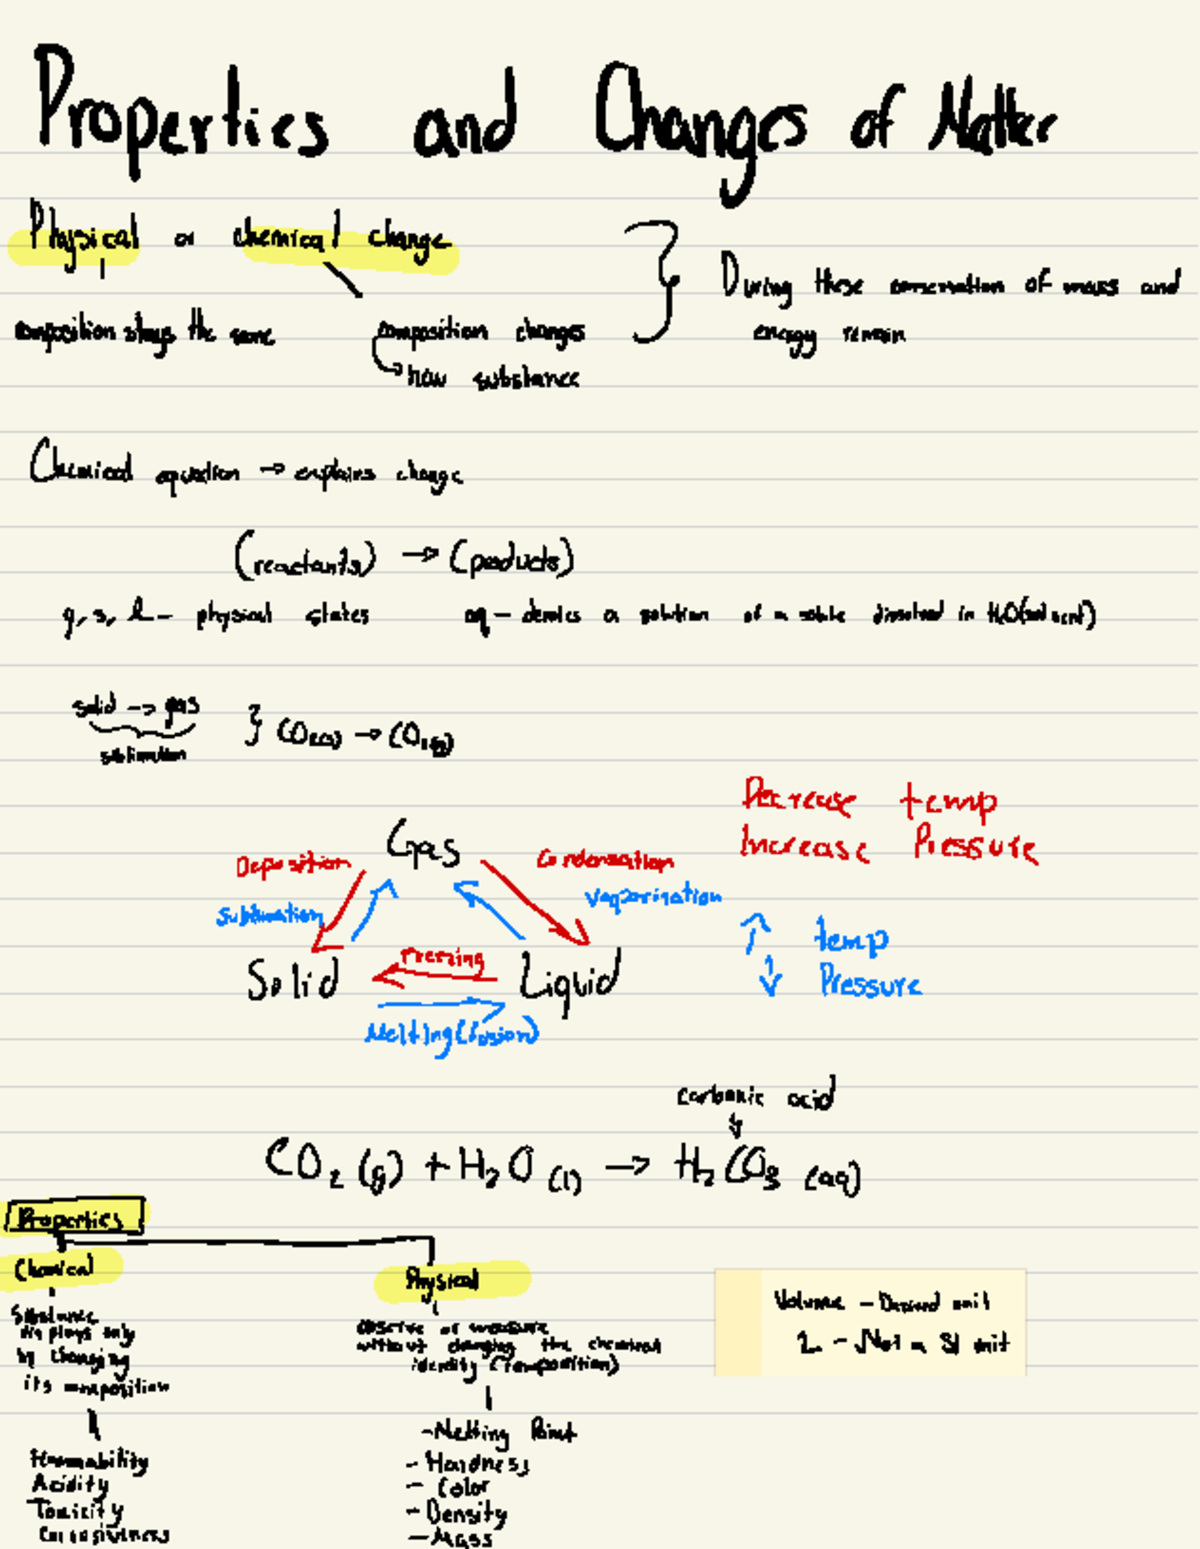 Properties and Changes of Matter
Physical or chemical change
During these conservation of mass and
energy remain
composition stays the same
composition changes
new substance
Chemical equation → explains change
(reactants) → (products)
g, s, l - physical states
aq - denotes a solution of a solute dissolved in H2O(solvent)
solid → gas
sublimation
} CO2(s) → CO2(g)
Decrease temp
Increase Pressure
Gas
Deposition
Condensation
Sublimation
Vaporization
↑ temp
↓ Pressure
Freezing
Solid
Liquid
Melting (fusion)
carbonic acid
CO2 (g) + H2O (l) → H2CO3 (aq)
Properties
Chemical
Substance
displays only
by changing
its composition
Flammability
Acidity
Toxicity
Corrosiveness
Physical
observe or measure
without changing the chemical
identity (composition)
- Melting Point
- Hardness
- Color
- Density
- Mass
Volume - Derived unit
L - Not a SI unit